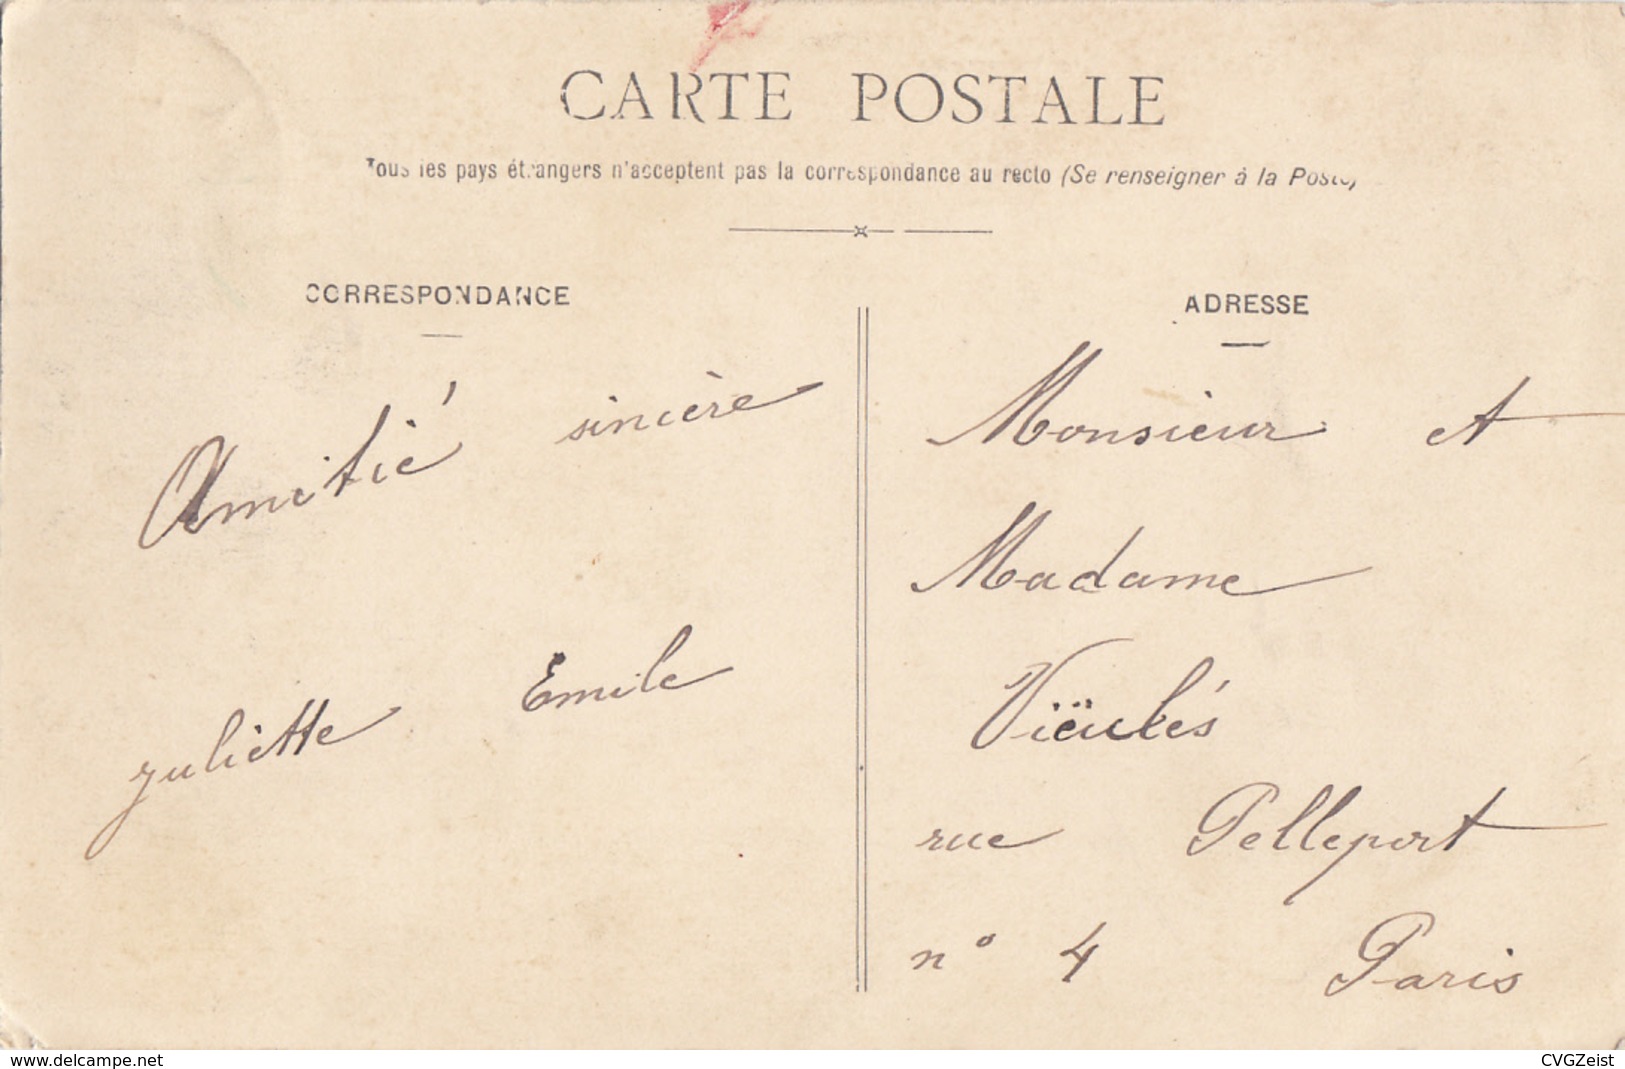 CARTE POSTALE
Tous les pays étrangers n'acceptent pas la correspondance au recto (Se renseigner à la Poste)
CORRESPONDANCE
Amitié sincère
juliette Emile
ADRESSE
Monsieur et
Madame
Viëulés
rue Pelleport
n° 4 Paris
www.delcampe.net
CVGZeist